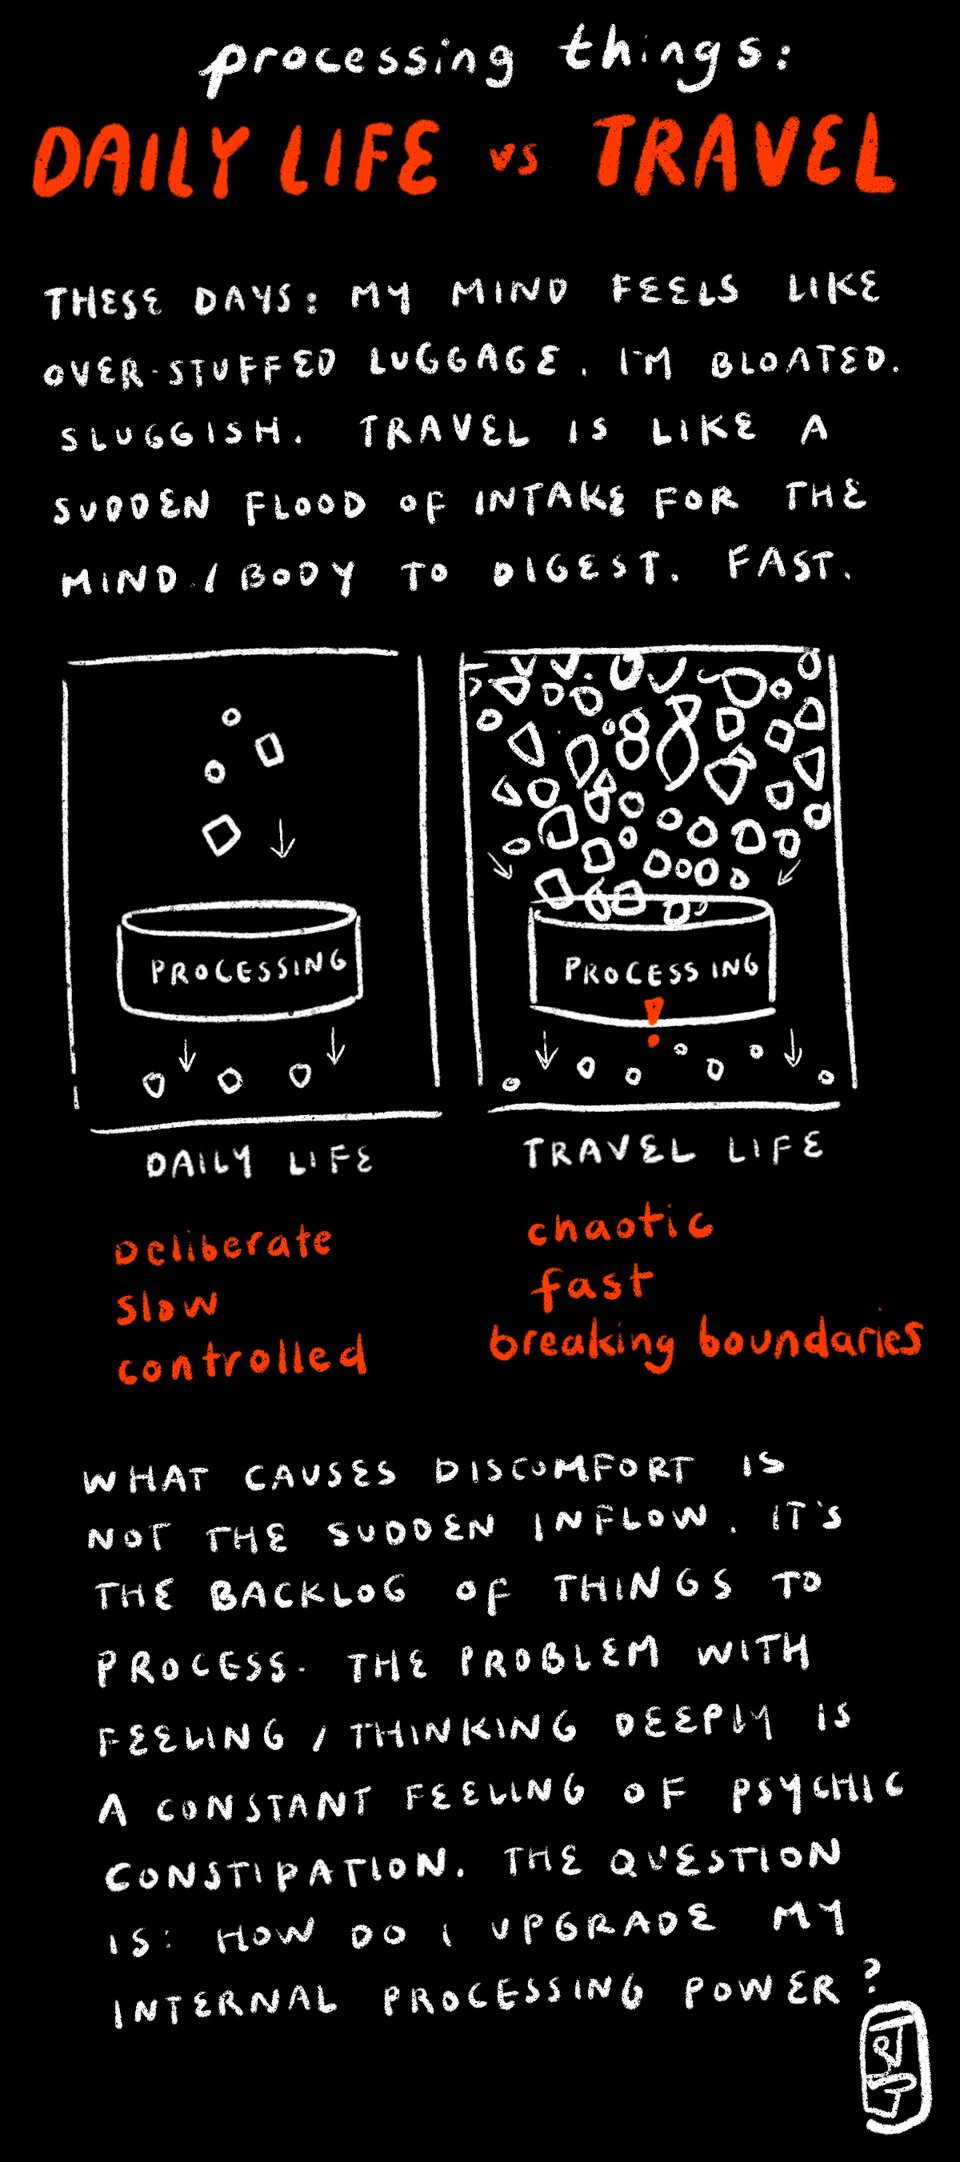 processing things:
DAILY LIFE vs TRAVEL
THESE DAYS: MY MIND FEELS LIKE
OVER-STUFFED LUGGAGE. I'M BLOATED.
SLUGGISH. TRAVEL IS LIKE A
SUDDEN FLOOD OF INTAKE FOR THE
MIND/BODY TO DIGEST. FAST.
PROCESSING
PROCESSING
!
DAILY LIFE
TRAVEL LIFE
Deliberate
slow
controlled
chaotic
fast
breaking boundaries
WHAT CAUSES DISCOMFORT IS
NOT THE SUDDEN INFLOW. IT'S
THE BACKLOG OF THINGS TO
PROCESS. THE PROBLEM WITH
FEELING / THINKING DEEPLY IS
A CONSTANT FEELING OF PSYCHIC
CONSTIPATION. THE QUESTION
IS: HOW DO I UPGRADE MY
INTERNAL PROCESSING POWER?